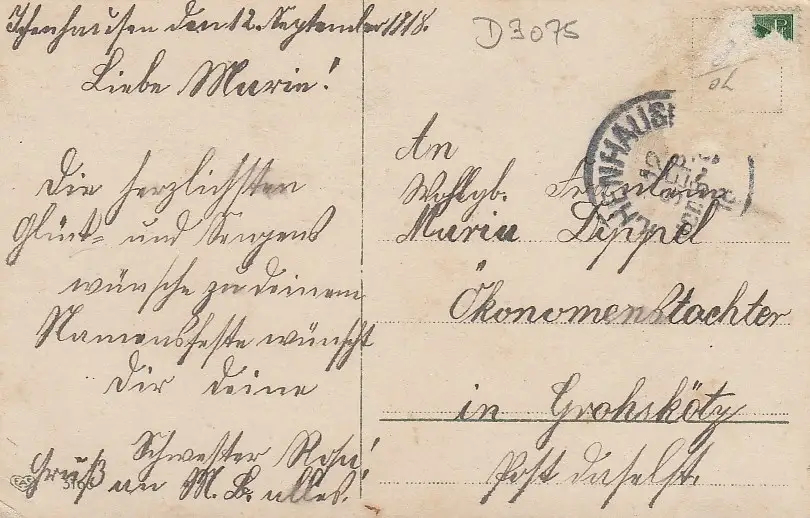 Ichenhausen den 12. September 1918.
D 3075
Liebe Marie!
Die herzlichsten
Glück- und Segens
wünsche zu deinem
Namensfeste wünscht
Dir deine
Schwester Rosa!
Gruß an M. B. alles!
An
Wohlgb. Fräulein
Maria Zippel
Ökonomenstochter
in Großkötz
Post daselbst.
ICHENHAUSEN
12
EAS